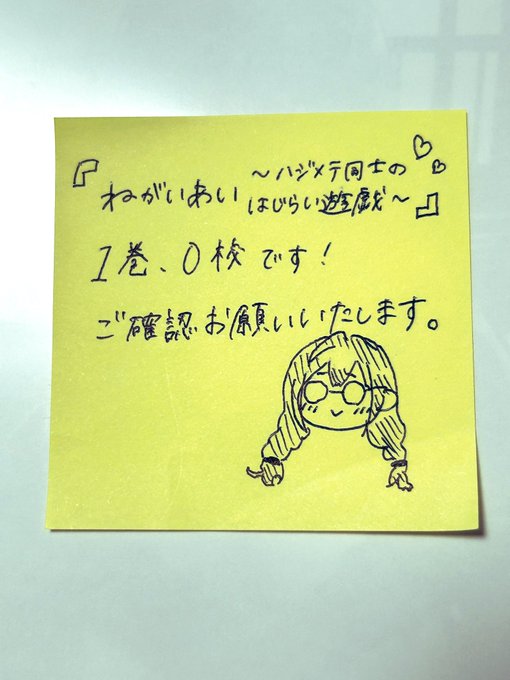 『ねがいあい ～ハジメテ同士の
はじらい遊戯～』
1巻、0校です！
ご確認お願いいたします。